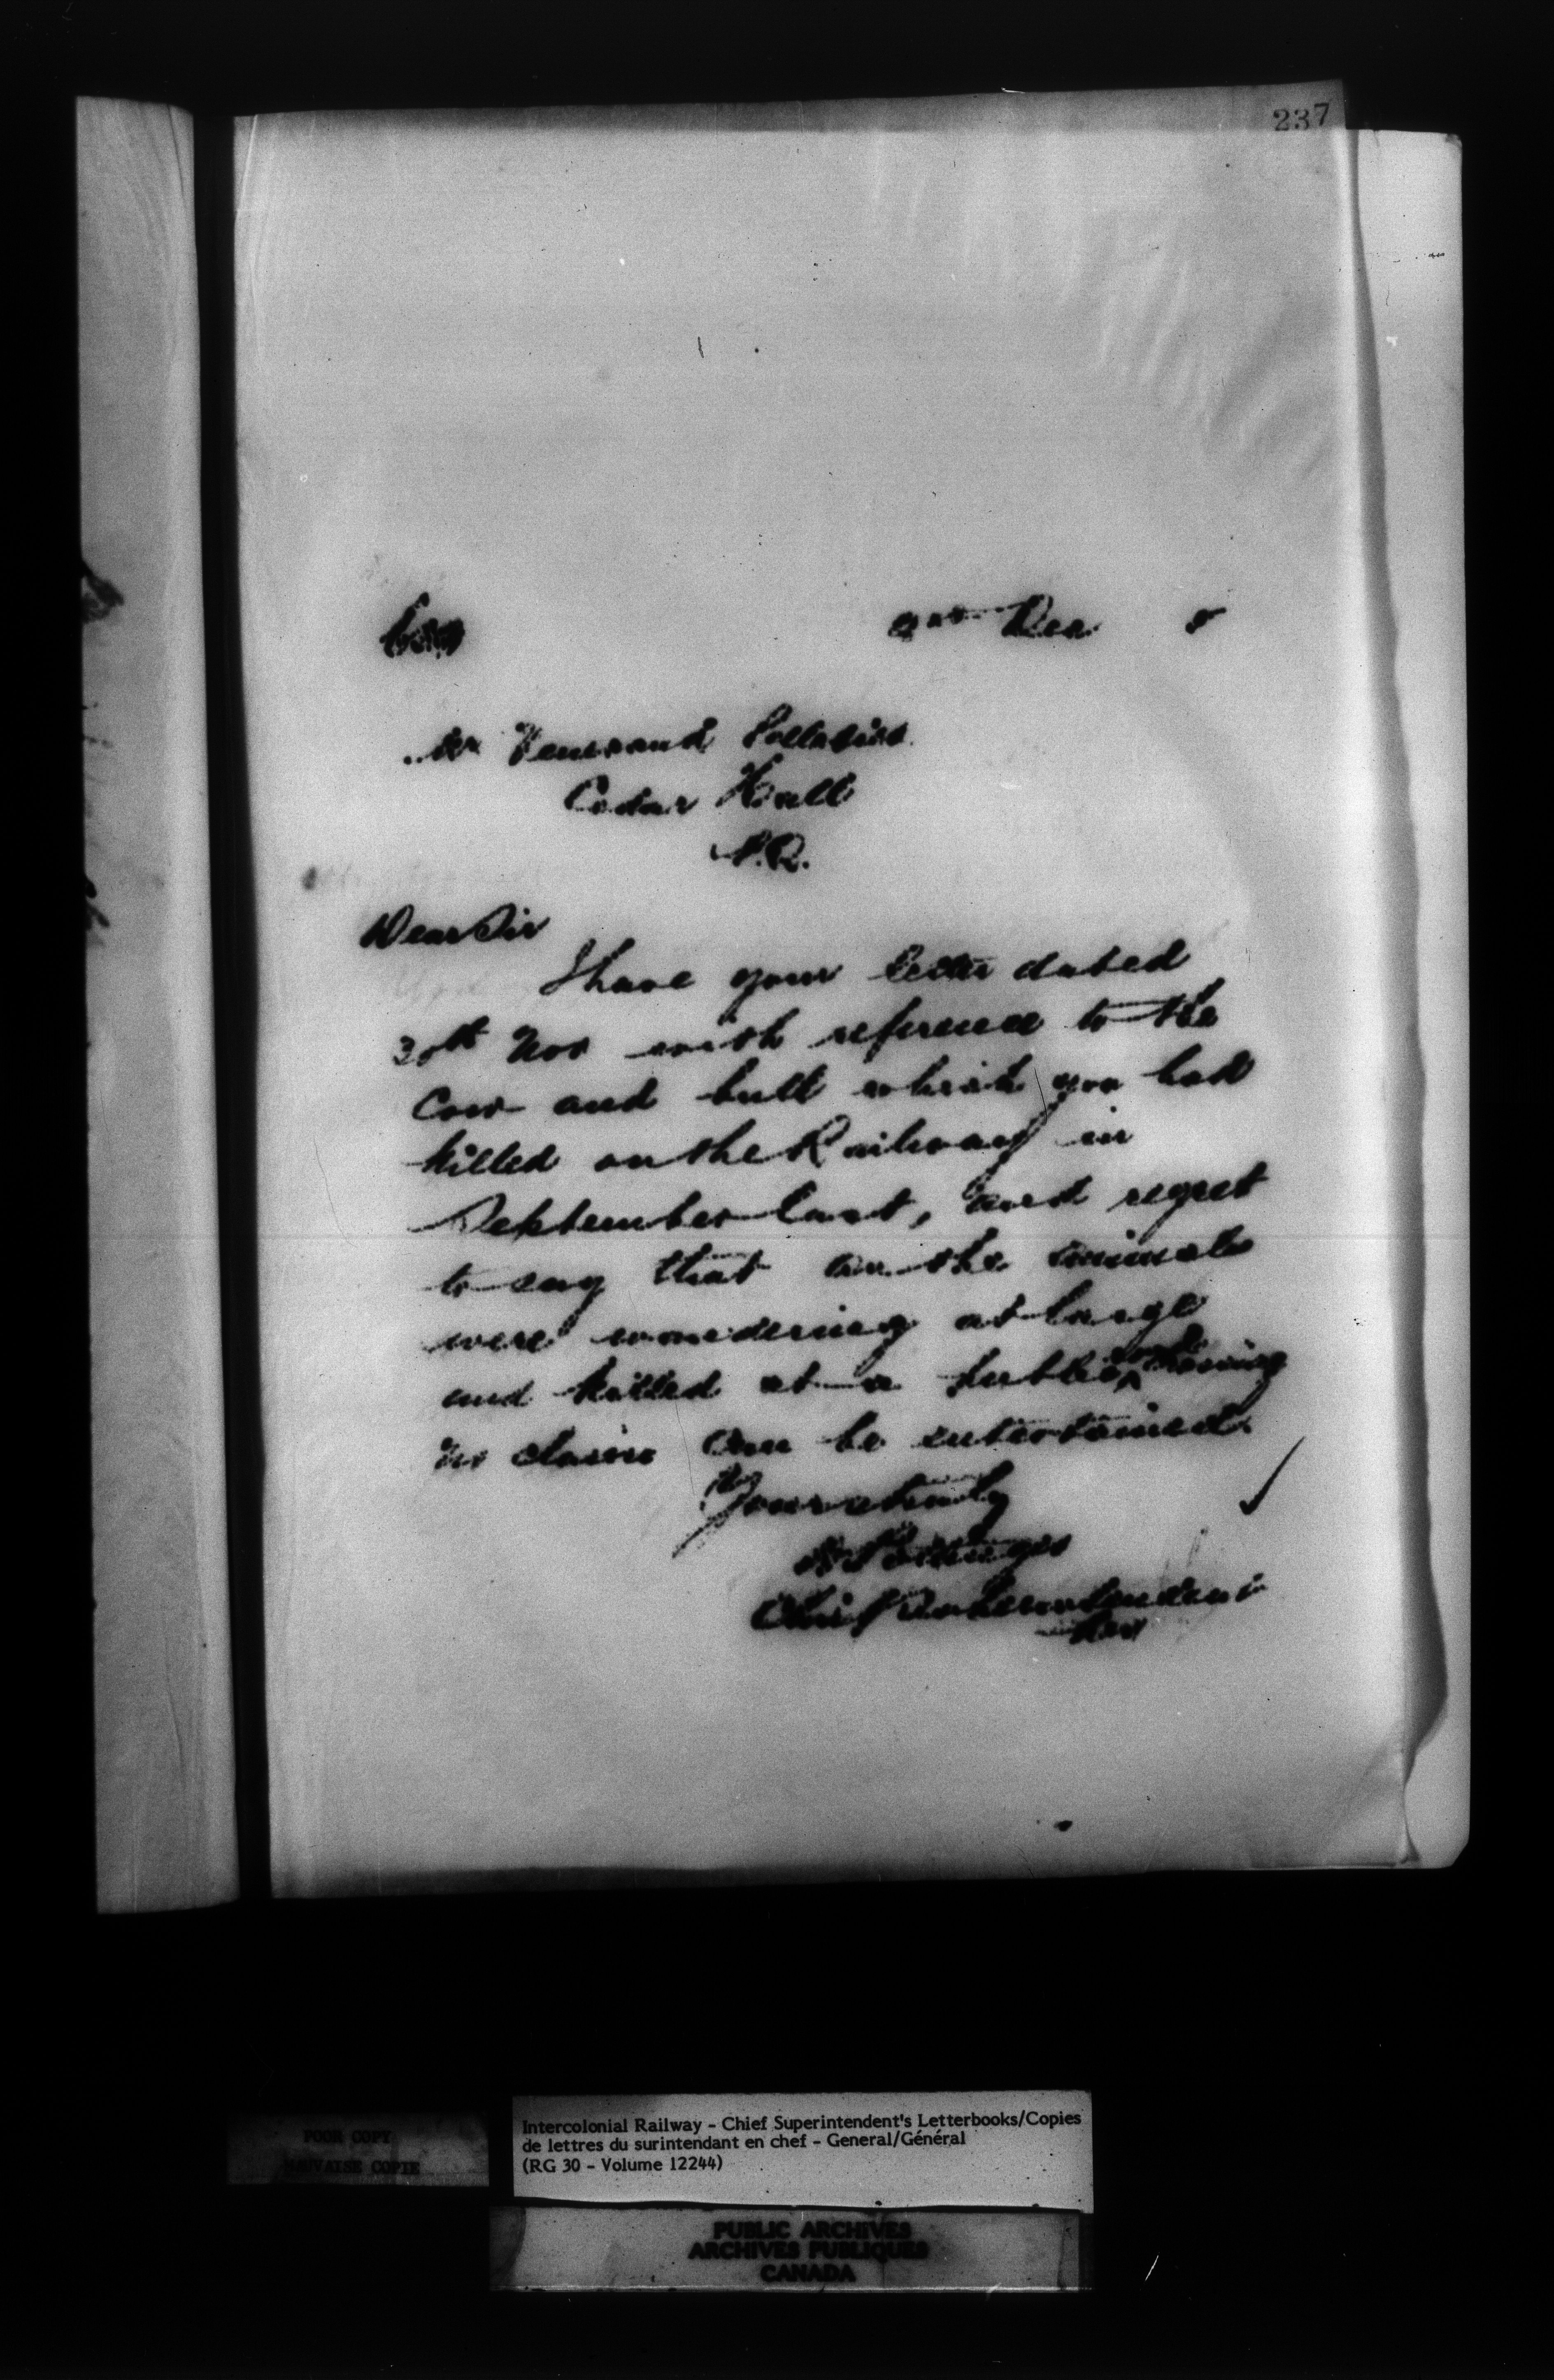 237
2nd Dec 5
Mr Venerand
Cedar Hall
P.Q.
Dear Sir
I have your letter dated
30th Nov with reference to the
Cow and bull which you had
killed on the Railway in
September last, and regret
to say that as the animals
were wandering at large
and killed at a public road crossing
no claim can be entertained.
Yours truly
D Pottinger
Chief Superintendent
POOR COPY
MAUVAISE COPIE
Intercolonial Railway - Chief Superintendent's Letterbooks/Copies
de lettres du surintendant en chef - General/Général
(RG 30 - Volume 12244)
PUBLIC ARCHIVES
ARCHIVES PUBLIQUES
CANADA